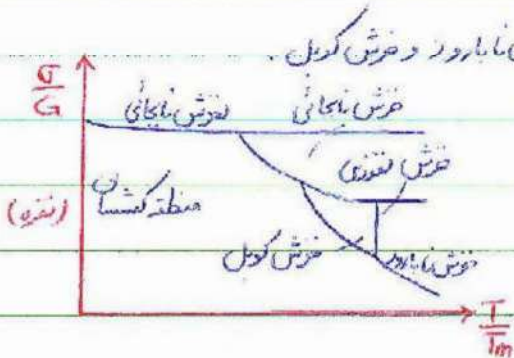 نابارو و خزش کوبل.
σ/G
لغزش نابجائی خزش نابجائی
خزش نفوذی
منطقه کشسان
(نقره)
خزش کوبل خزش نابارو
T/Tm